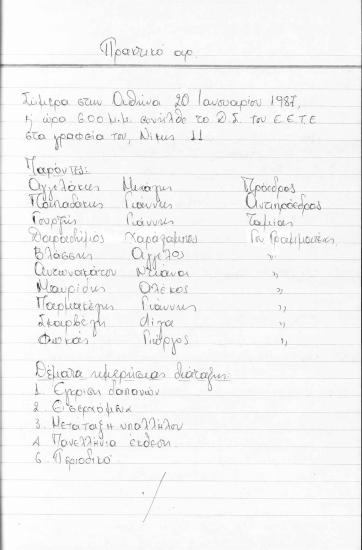 Πρακτικό αρ.
Σήμερα στην Αθήνα 20 Ιανουαρίου 1987,
η ώρα 6.00 μ.μ. συνήλθε το Δ.Σ. του Ε.Ε.Τ.Ε
στα γραφεία του, Νίκης 11
Παρόντες:
Αγγελάκης Μιχάλης Πρόεδρος
Παπαδάκης Γιάννης Αντιπρόεδρος
Γουρζής Γιάννης Ταμίας
Δαραδήμος Χαράλαμπος Γεν Γραμματέας
Βλάσσης Άγγελος "
Αντωνακάτου Ντιάνα "
Μαυρίδης Αλέκος "
Παρμακέλης Γιάννης "
Σκαρβέλη Λίζα "
Φωκάς Γιώργος "
Θέματα ημερήσιας διάταξης:
1. Έγκριση δαπανών
2. Εισερχόμενα
3. Μετάταξη υπαλλήλου
4. Πανελλήνια έκθεση
6. Περιοδικό